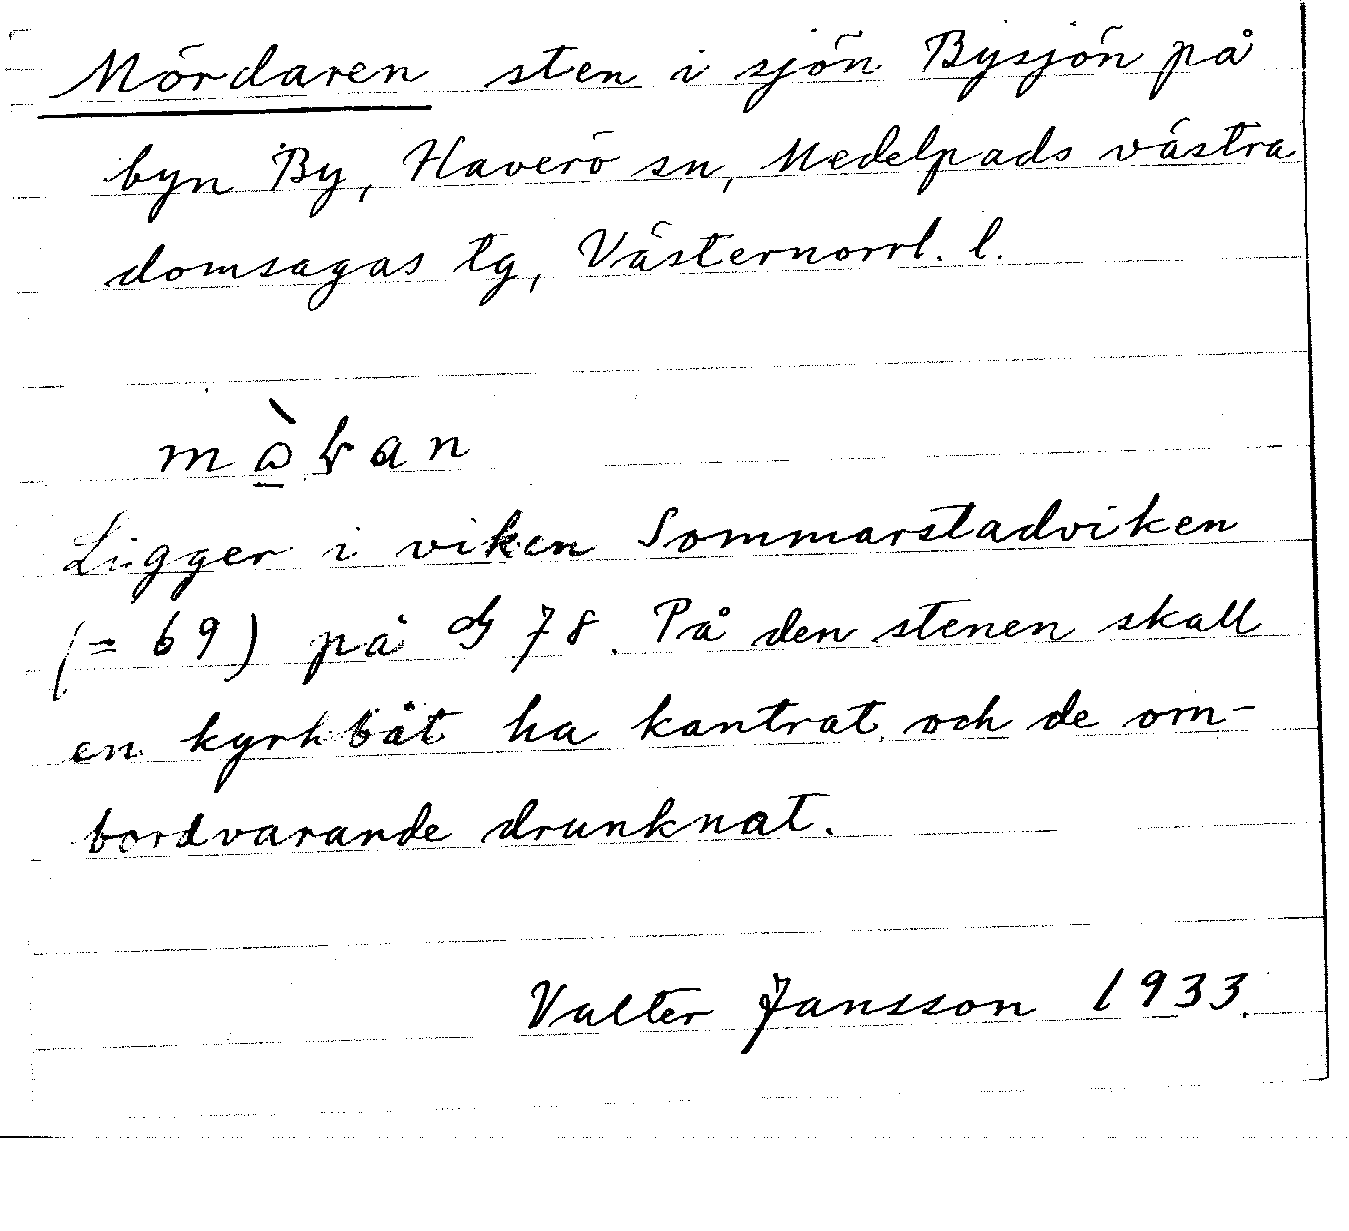 Mördaren sten i sjön Bysjön på
byn By, Haverö sn, Medelpads västra
domsagas tg, Västernorrl. l.
Ligger i viken Sommarstadviken
(= 69) på 78. På den stenen skall
en kyrkbåt ha kantrat och de om-
bordvarande drunknat.
Valter Jansson 1933.